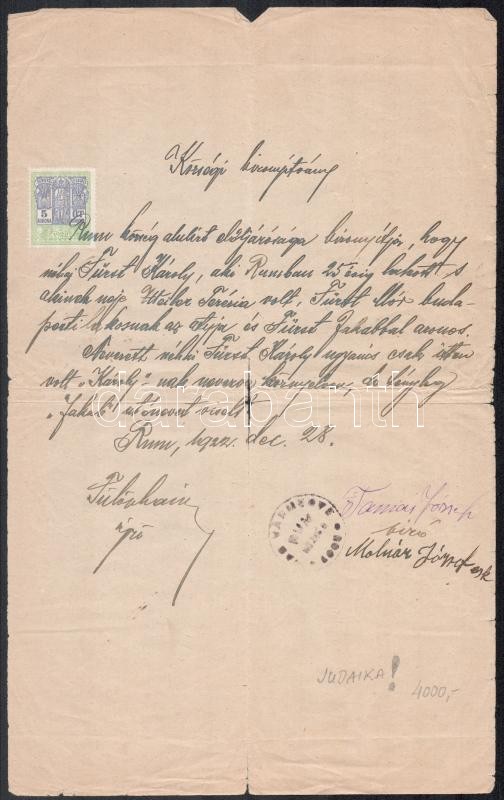 Községi bizonyítvány
5
KORONA
Rum község alulirt előljárósága bizonyítja, hogy
néhaj Fürst Károly, aki Rumban 25 évig lakott s
akinek neje Weiler Terézia volt, Fürst Mór buda-
pesti lakosnak az atyja és Fürst Jakabbal azonos.
Nevezett néhai Fürst Károly ugyanis csak itten
volt "Károly"-nak nevezve környelven, de tényleg
"Jakab" utónevet viselt.
Rum, 1922. dec. 28.
darabanth
jző
VAS VÁRMEGYE
RUM
KÖZSÉG
Tamás József
biró
Molnár József esk
JUDAIKA!
4000,-